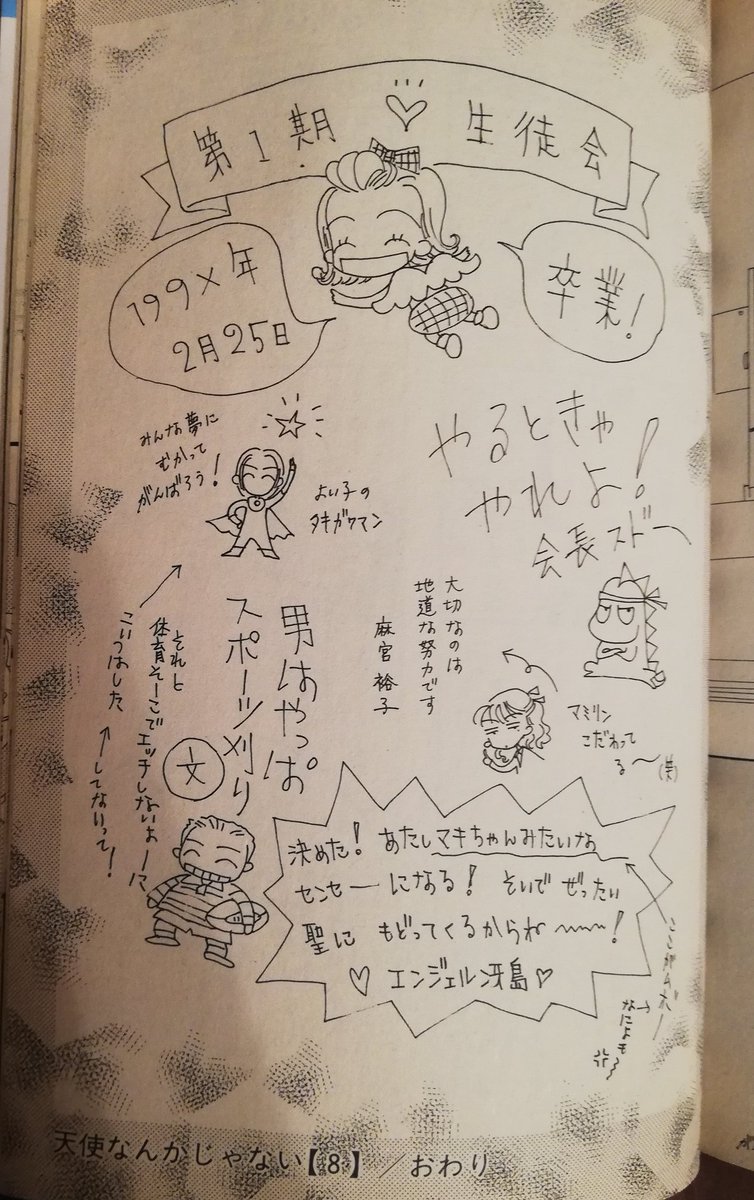 第1期♡生徒会
199×年
2月25日
卒業!
みんな夢に
むかって
がんばろう!
よい子の
タキガワマン
やるときゃ
やれよ!
会長スドー
大切なのは
地道な努力です
麻宮裕子
マミリン
こだわって
る〜(笑)
男はやっぱ
スポーツ刈り
文
それと
体育そーこでエッチしないよーに
こいつはした
してないって!
決めた! あたしマキちゃんみたいな
センセーになる! そいで ぜったい
聖に もどってくるからね〜〜!
♡ エンジェル冴島♡
なによも〜
天使なんかじゃない【8】/おわり